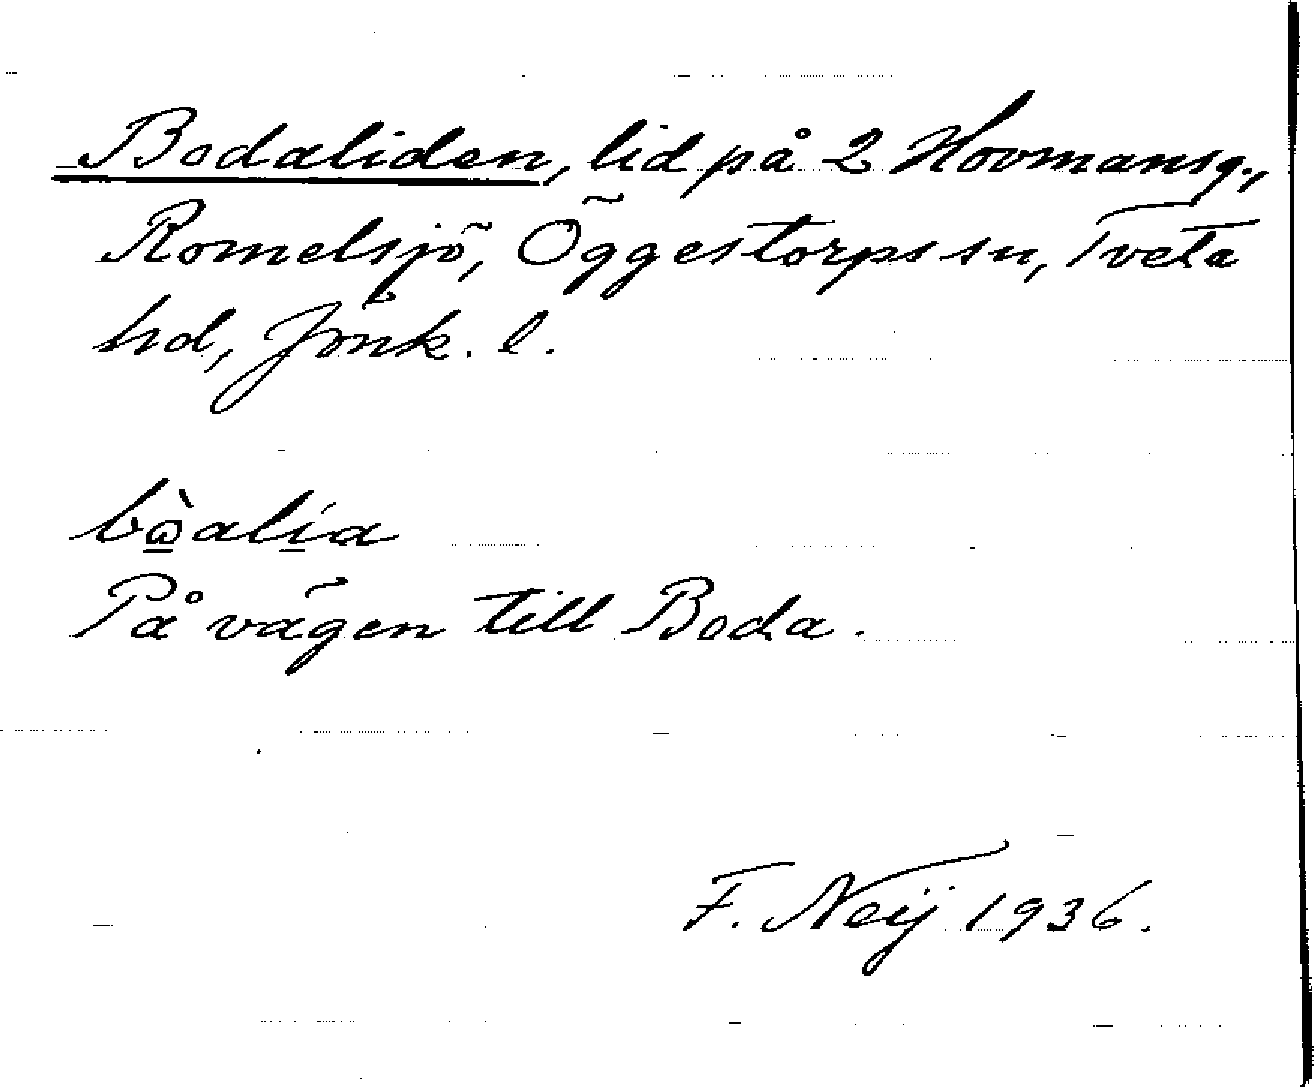 Bodaliden, lid på 2 Hovmansg.,
Romelsjö, Öggestorps sn, Tveta
hd, Jönk. l.
bò̱ali̱a
På vägen till Boda.
F. Neij 1936.